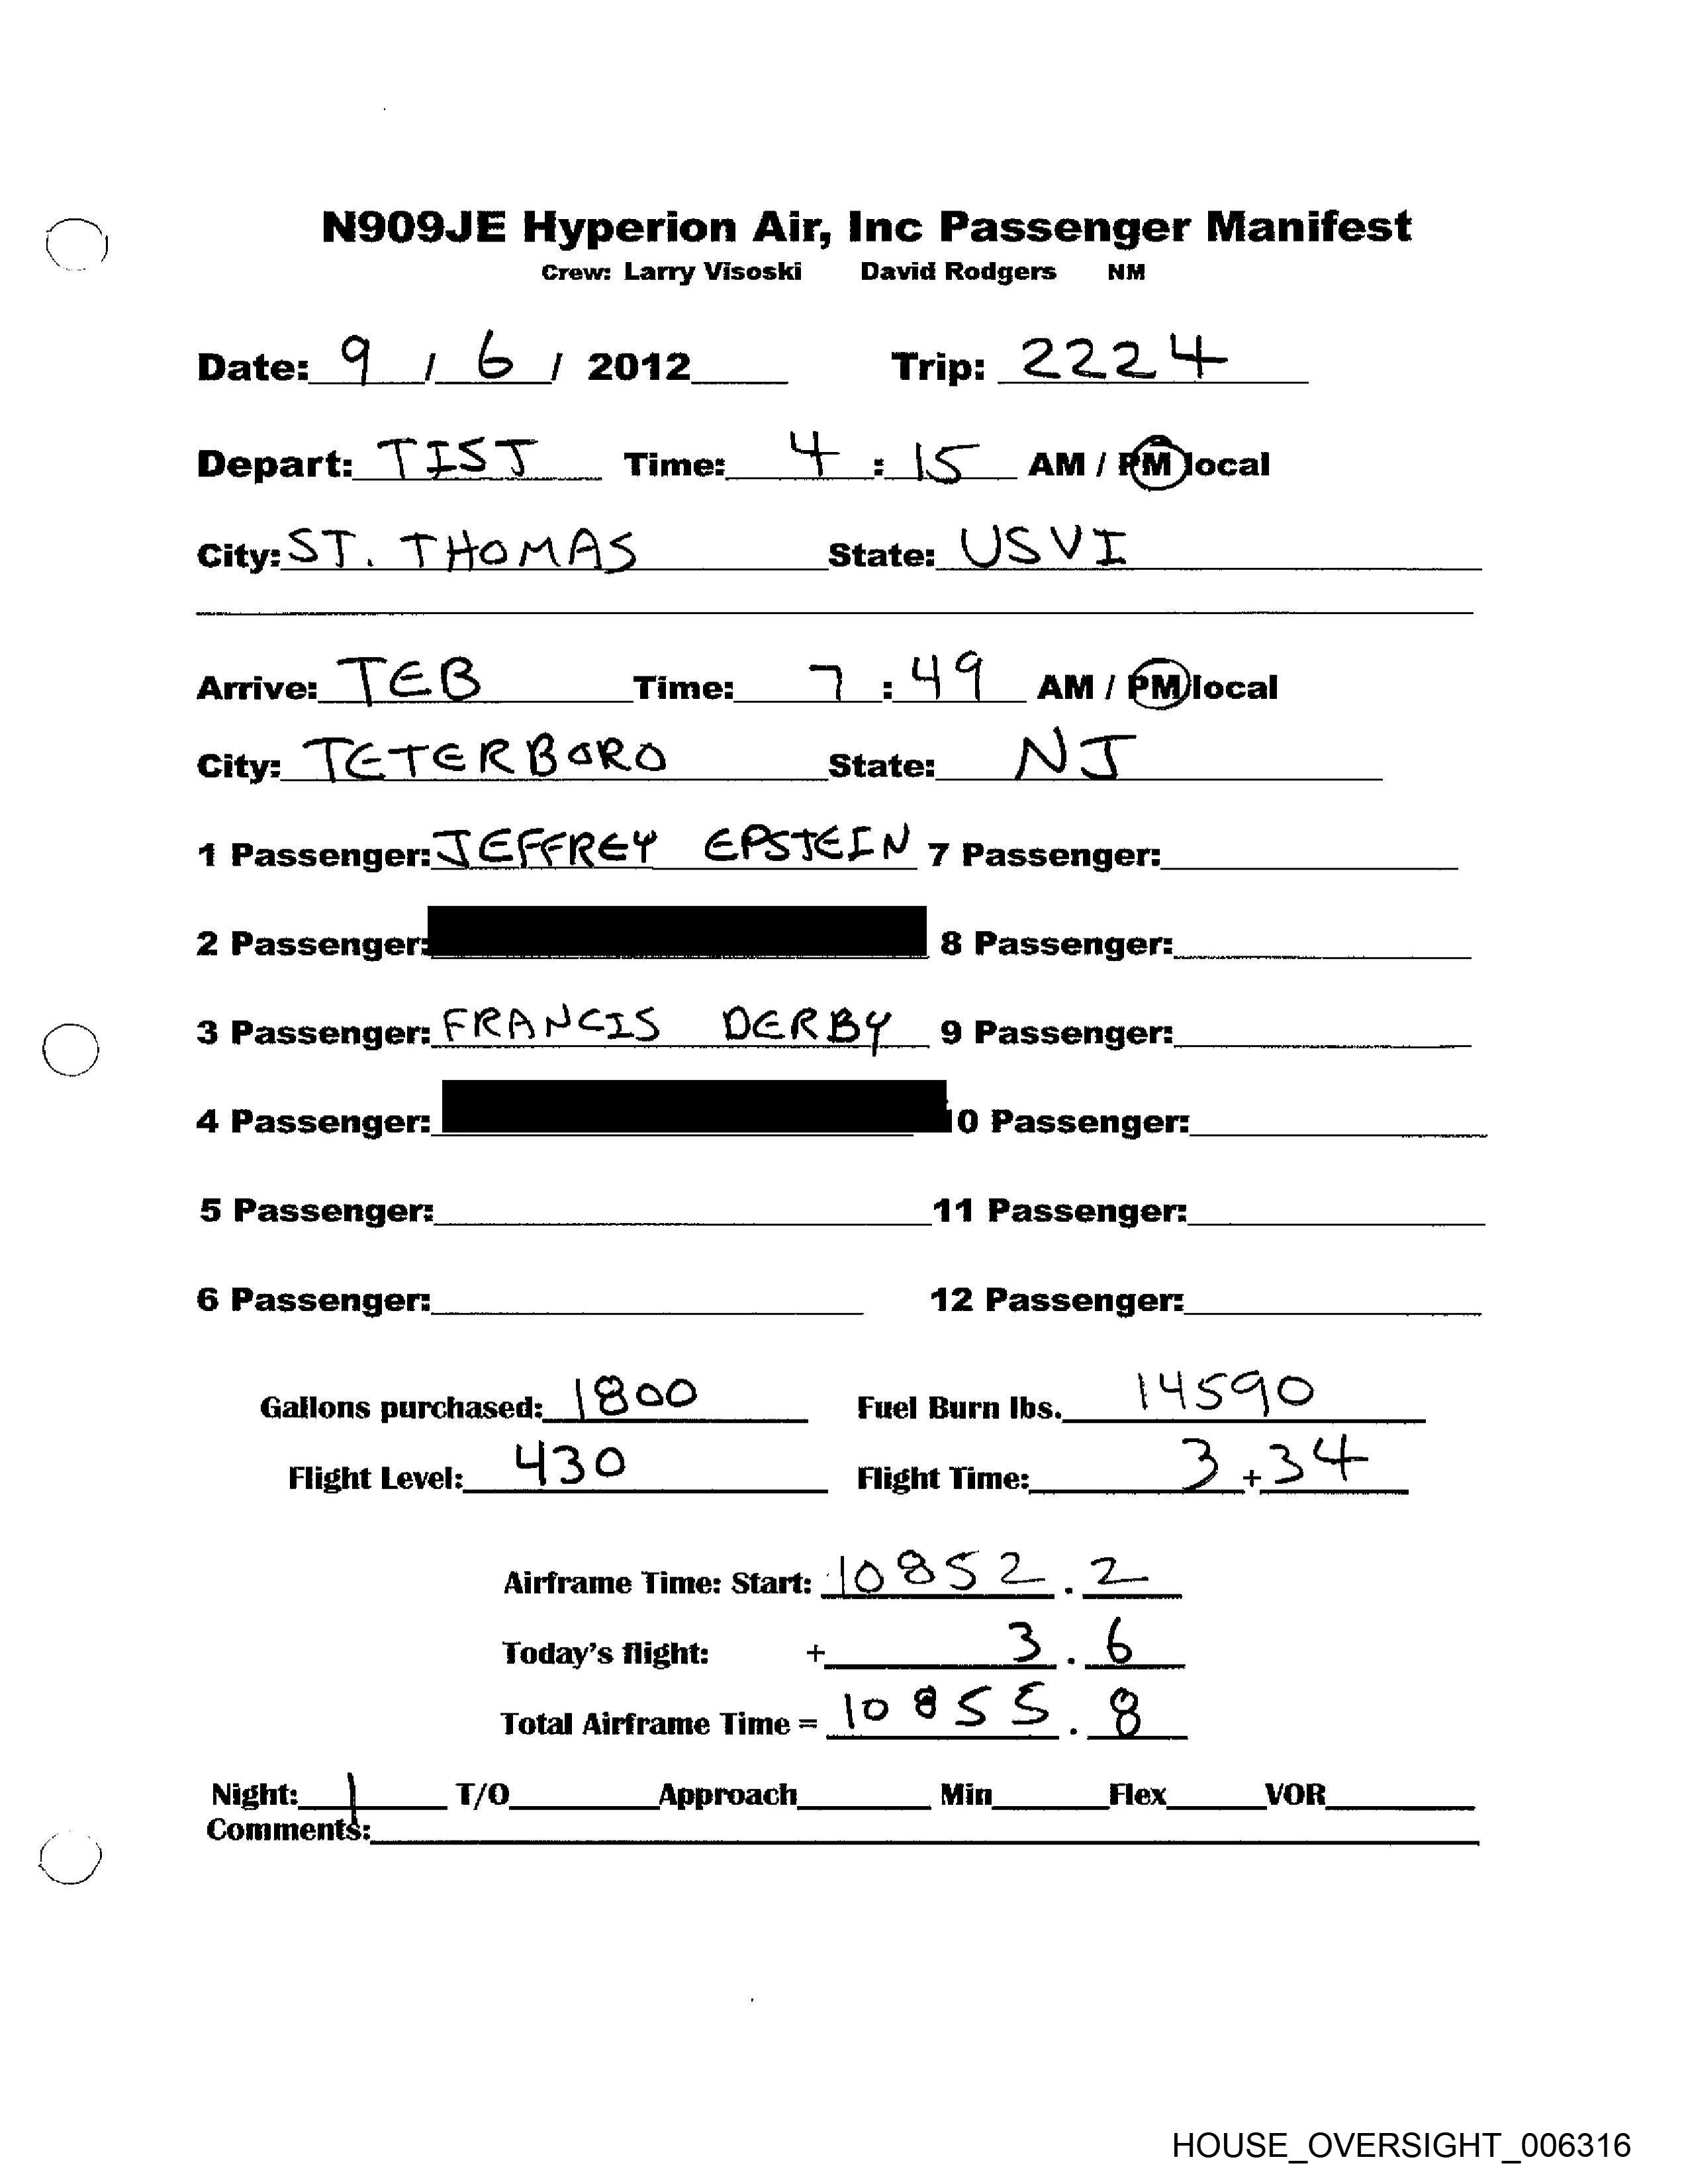 N909JE Hyperion Air, Inc Passenger Manifest
Crew: Larry Visoski David Rodgers NM
Date: 9 / 6 / 2012 Trip: 2224
Depart: TIST Time: 4 : 15 AM / PM local
City: ST. THOMAS State: USVI
Arrive: TEB Time: 7 : 49 AM / PM local
City: TETERBORO State: NJ
1 Passenger: JEFFREY EPSTEIN 7 Passenger:
2 Passenger: 8 Passenger:
3 Passenger: FRANCIS DERBY 9 Passenger:
4 Passenger: 10 Passenger:
5 Passenger: 11 Passenger:
6 Passenger: 12 Passenger:
Gallons purchased: 1800 Fuel Burn lbs. 14590
Flight Level: 430 Flight Time: 3 + 34
Airframe Time: Start: 10852 . 2
Today's flight: + 3 . 6
Total Airframe Time = 10855 . 8
Night: 1 T/O Approach Min Flex VOR
Comments:
HOUSE_OVERSIGHT_006316